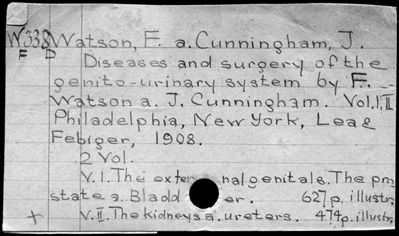 W338 Watson, F. a. Cunningham, J.
F D Diseases and surgery of the
genito-urinary system by F.
Watson a. J. Cunningham. Vol.I,II
Philadelphia, New York, Lea &
Febiger, 1908.
2 Vol.
V.I. The external genitals. The pro
state a. Bladder. 627p. illustr.
+ V.II. The kidneys a. ureters. 474p. illustr.